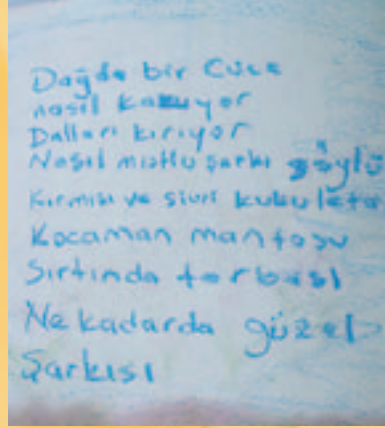 Dağda bir Cüce
nasıl kazıyor
Dalları kırıyor
Nasıl mutlu şarkı söylü
Kırmısı ve sivri kukuleta
Kocaman mantosu
Sırtında torbası
Ne kadarda güzel
Şarkısı